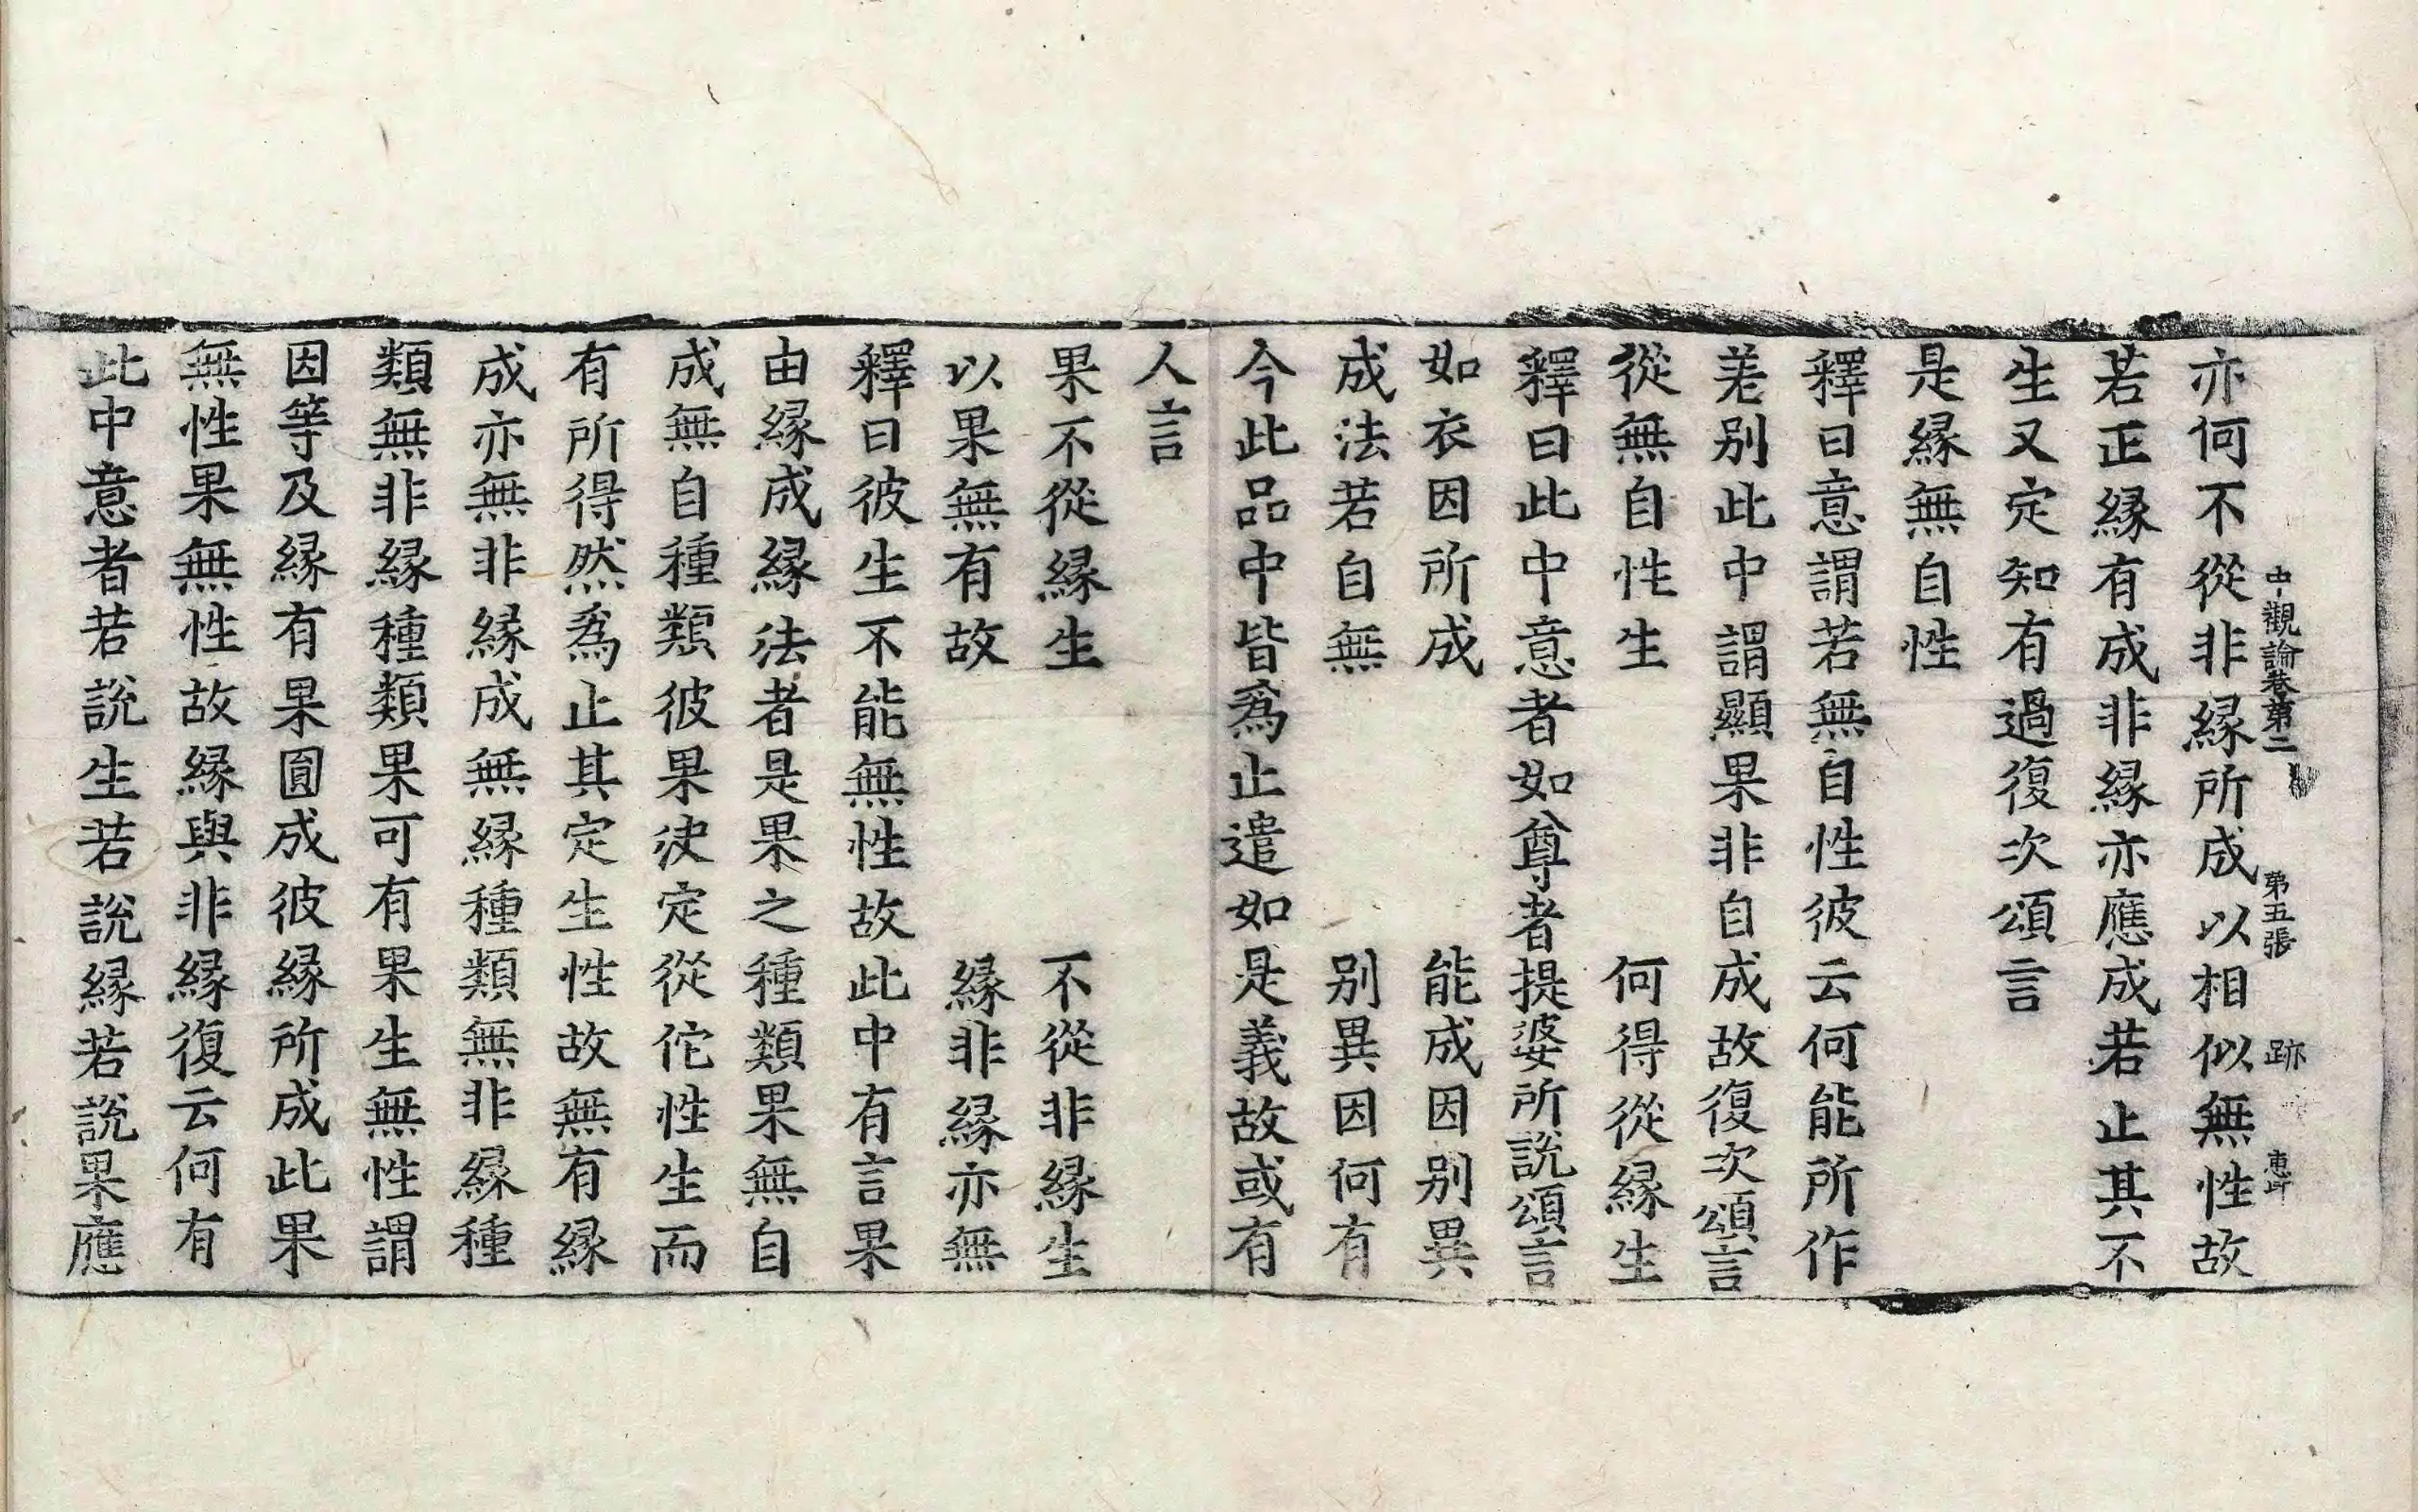 中觀論卷第二 第五張 跡
亦何不從非緣所成以相似無性故
若正緣有成非緣亦應成若止其不
生又定知有過復次頌言
是緣無自性
釋曰意謂若無自性彼云何能所作
差別此中謂顯果非自成故復次頌言
從無自性生 何得從緣生
釋曰此中意者如尊者提婆所說頌言
如衣因所成 能成因別異
成法若自無 別異因何有
今此品中皆爲止遣如是義故或有
人言
果不從緣生 不從非緣生
以果無有故 緣非緣亦無
釋曰彼生不能無性故此中有言果
由緣成緣法者是果之種類果無自
成無自種類彼果決定從佗性生而
有所得然爲止其定生性故無有緣
成亦無非緣成無緣種類無非緣種
類無非緣種類果可有果生無性謂
因等及緣有果圓成彼緣所成此果
無性果無性故緣與非緣復云何有
此中意者若說生若說緣若說果應